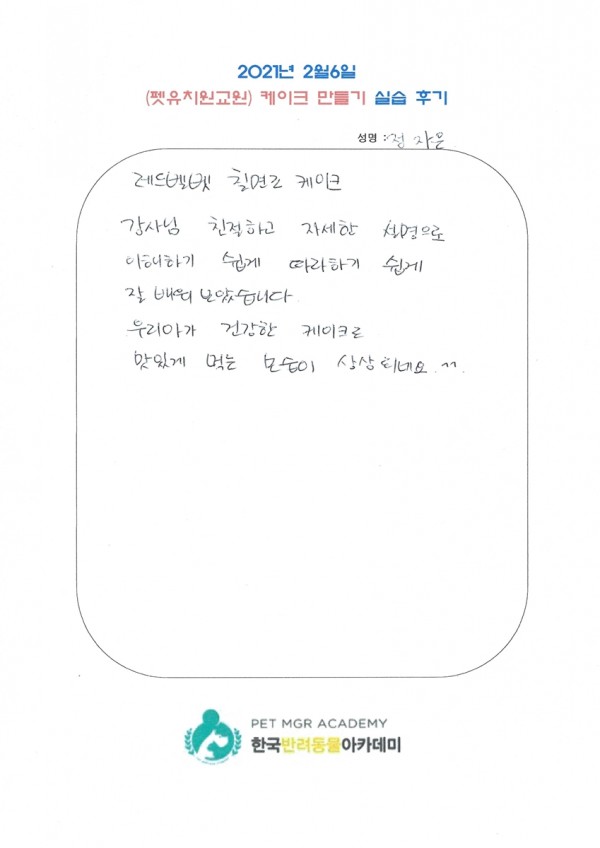 2021년 2월6일
(펫유치원교원) 케이크 만들기 실습 후기
성명 : 정 자운
레드벨벳 칠면조 케이크
강사님 친절하고 자세한 설명으로
이해하기 쉽게 따라하기 쉽게
잘 배워 보았습니다.
우리아가 건강한 케이크로
맛있게 먹는 모습이 상상 되네요. ^^.
PET MGR ACADEMY
한국반려동물아카데미